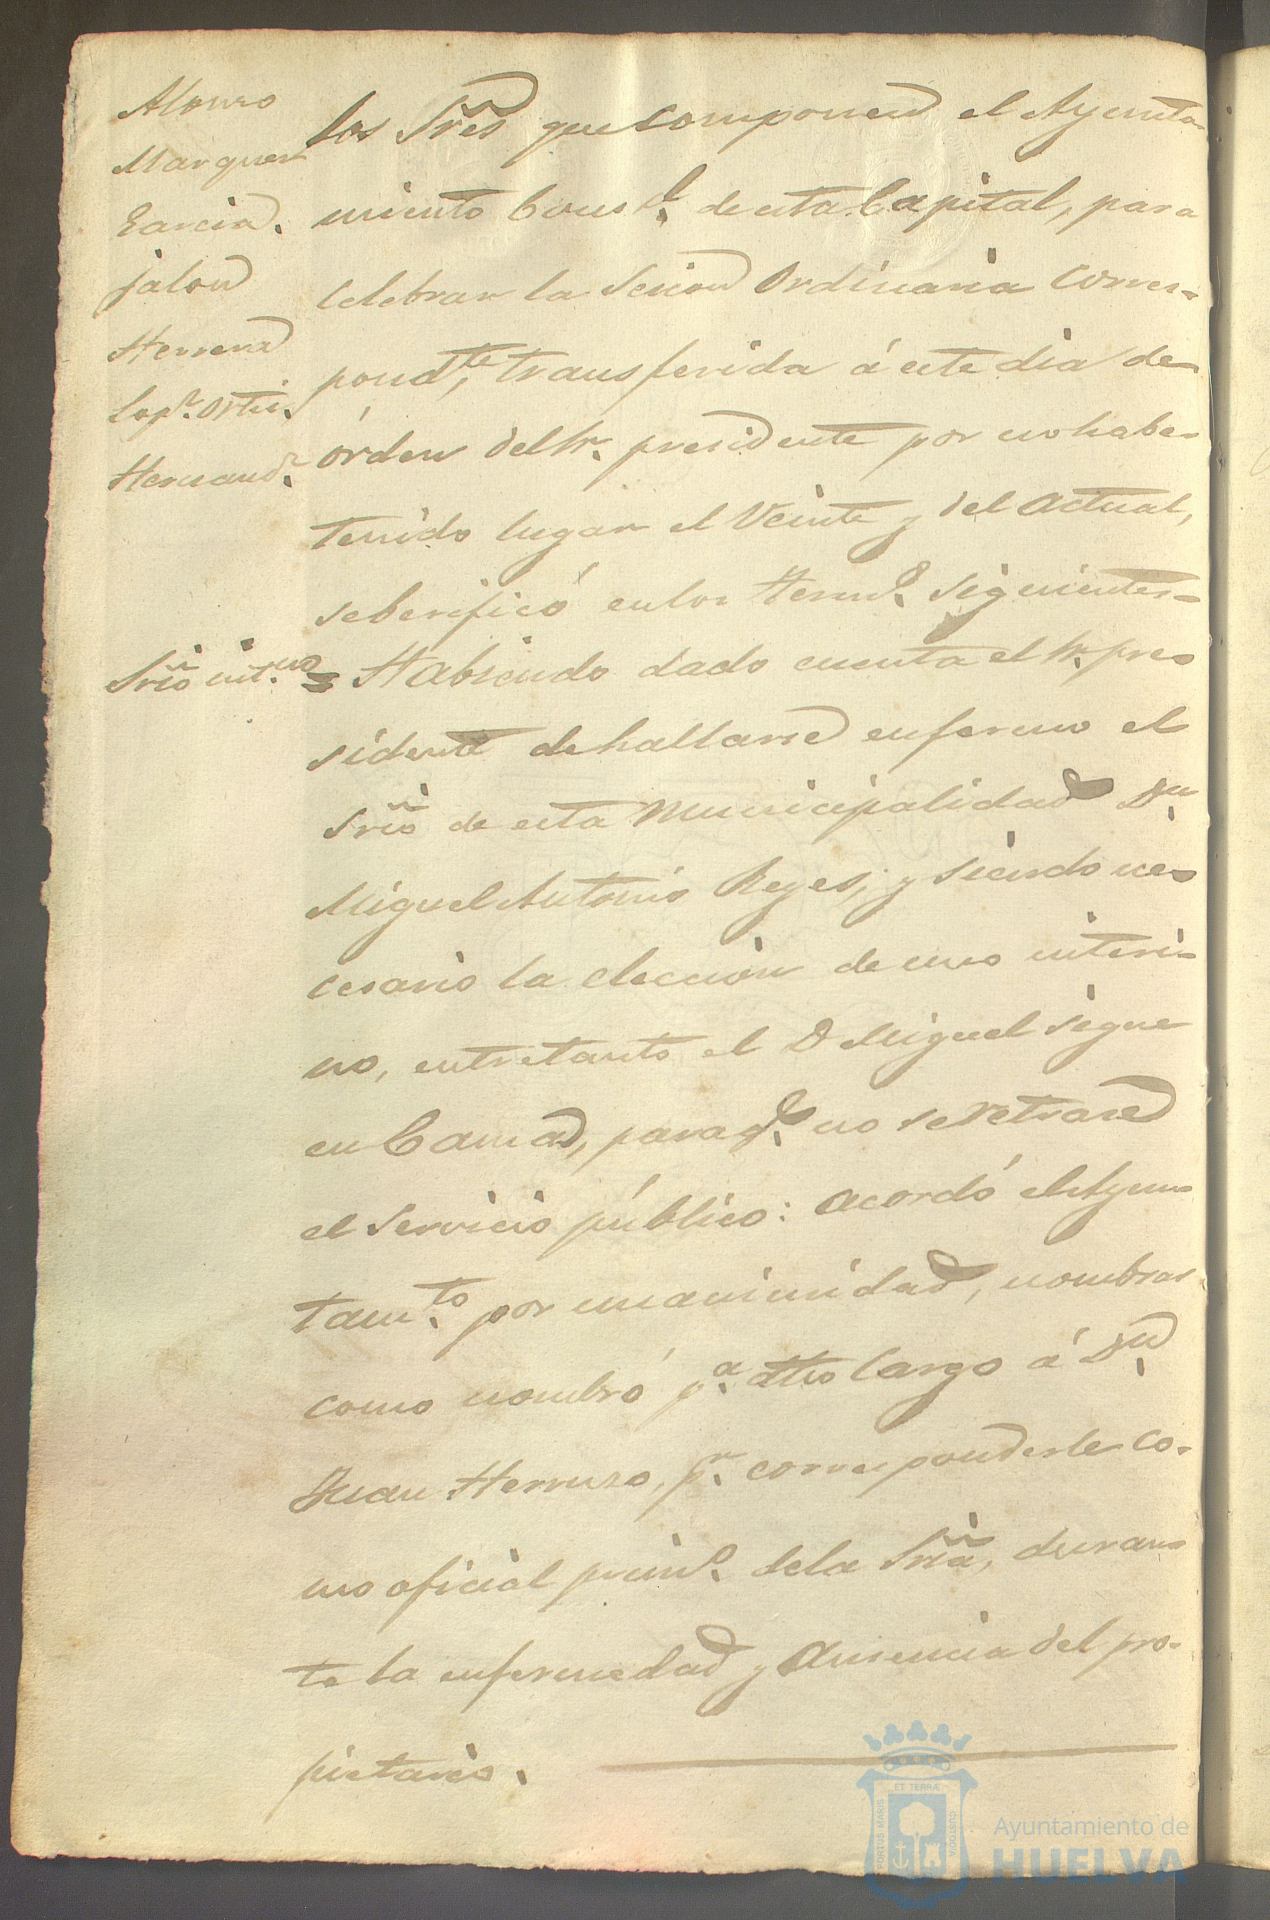 Alonso
Marquez
Garcia.
jalon
Herrera
Lopz. Ortiz.
Hernandz.
Srio. intno.
los Sres. que componen el Ayunta-
miento Consl. de esta Capital, para
celebrar la Sesion Ordinaria Corres-
pondte., transferida á este dia de
órden del Sr. presidente por no haber
tenido lugar el Veinte y del actual,
se berificó en los termos. siguientes=
= Habiendo dado cuenta el Sr. pre
sidente de hallarse enfermo el
Srio. de esta Municipalidad Dn.
Miguel Antonio Reyes; y siendo ne-
cesario la eleccion de uno interi-
no, entretanto el D Miguel sigue
en Cama, para qe. no se retrase
el servicio público: acordó el Ayun-
tamto. por unanimidad, nombrar
como nombró pa. dho Cargo á Dn.
Juan Herrera, pr. corresponderle co-
mo oficial prinl. de la Sria, duran-
te la enfermedad y Ausencia del pro-
pietario.
PORTUS MARIS ET TERRÆ CUSTODIA
Ayuntamiento de
HUELVA